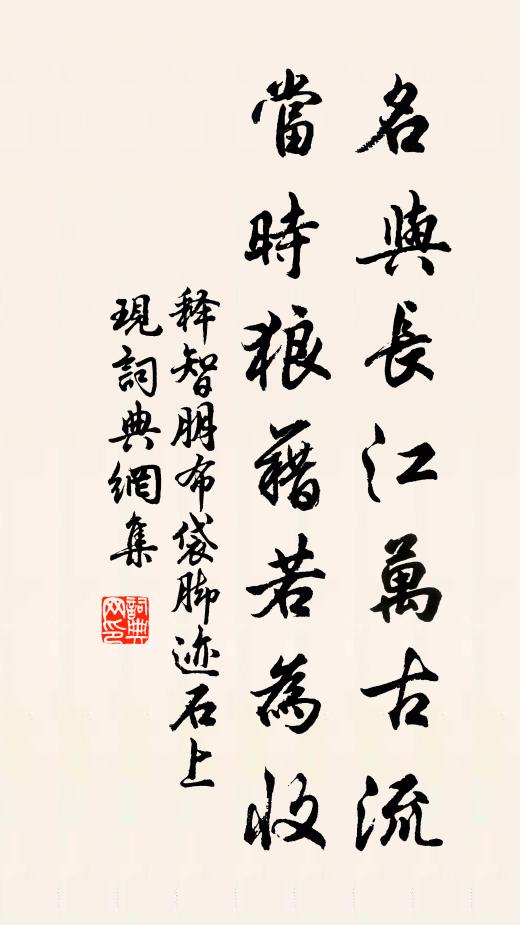 名與長江萬古流
當時狼藉若為收
释智朋布袋脚迹石上
現詞典網集
詞典
网印